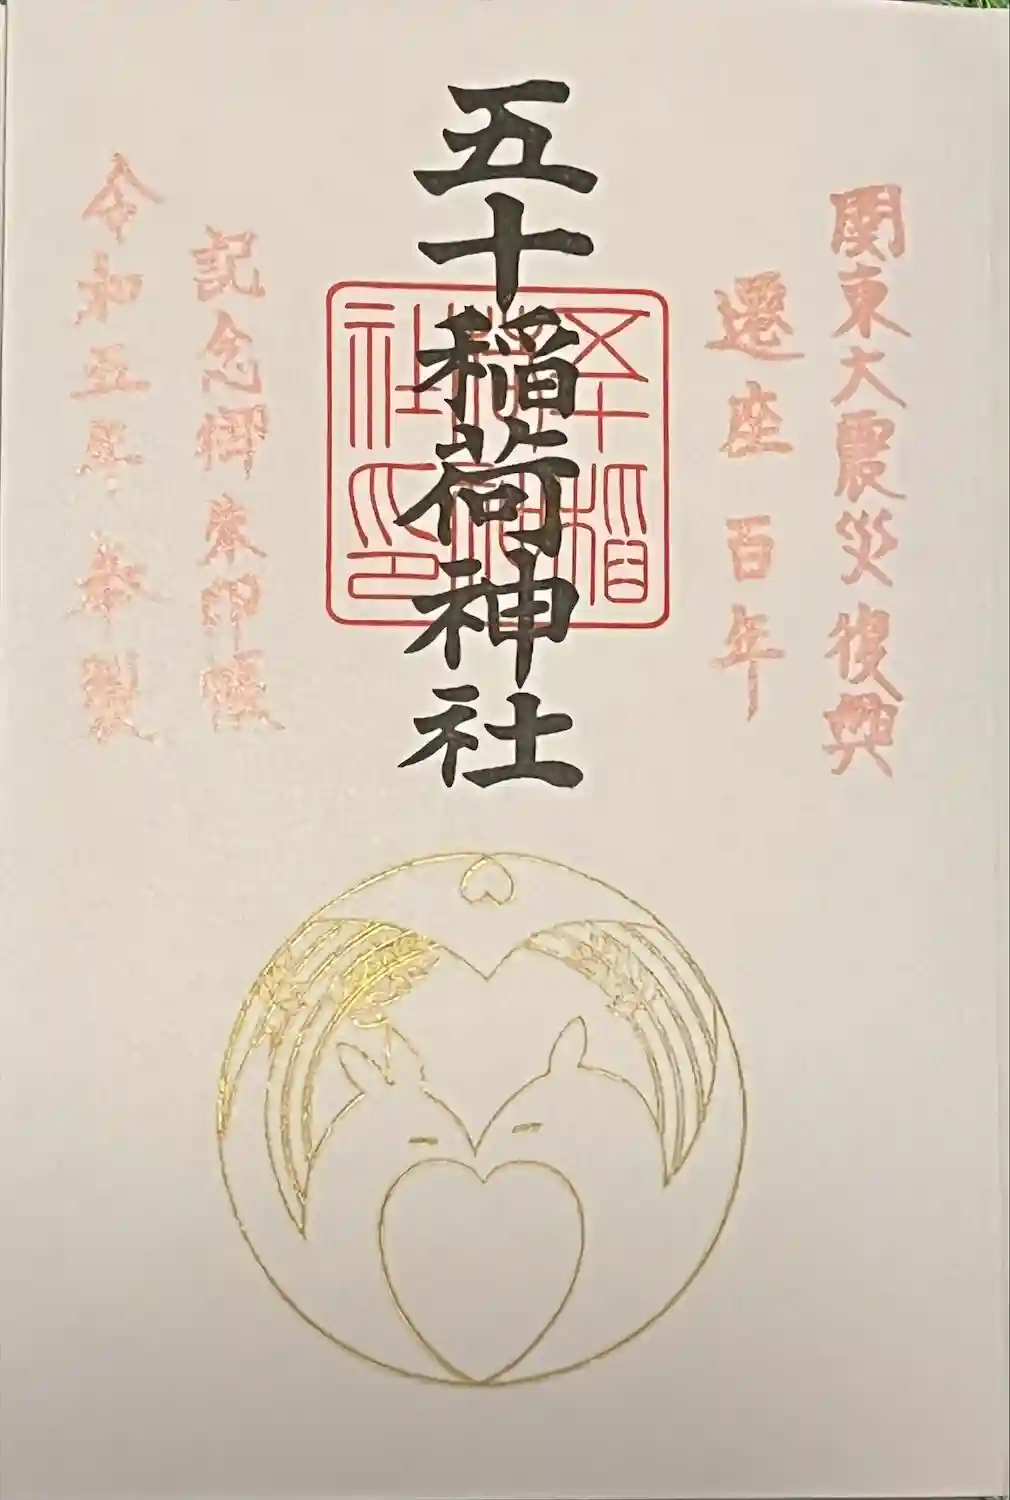 関東大震災復興
遷座百年
五十稲荷神社
五十稲荷神社印
記念御朱印帳
令和五年春謹製